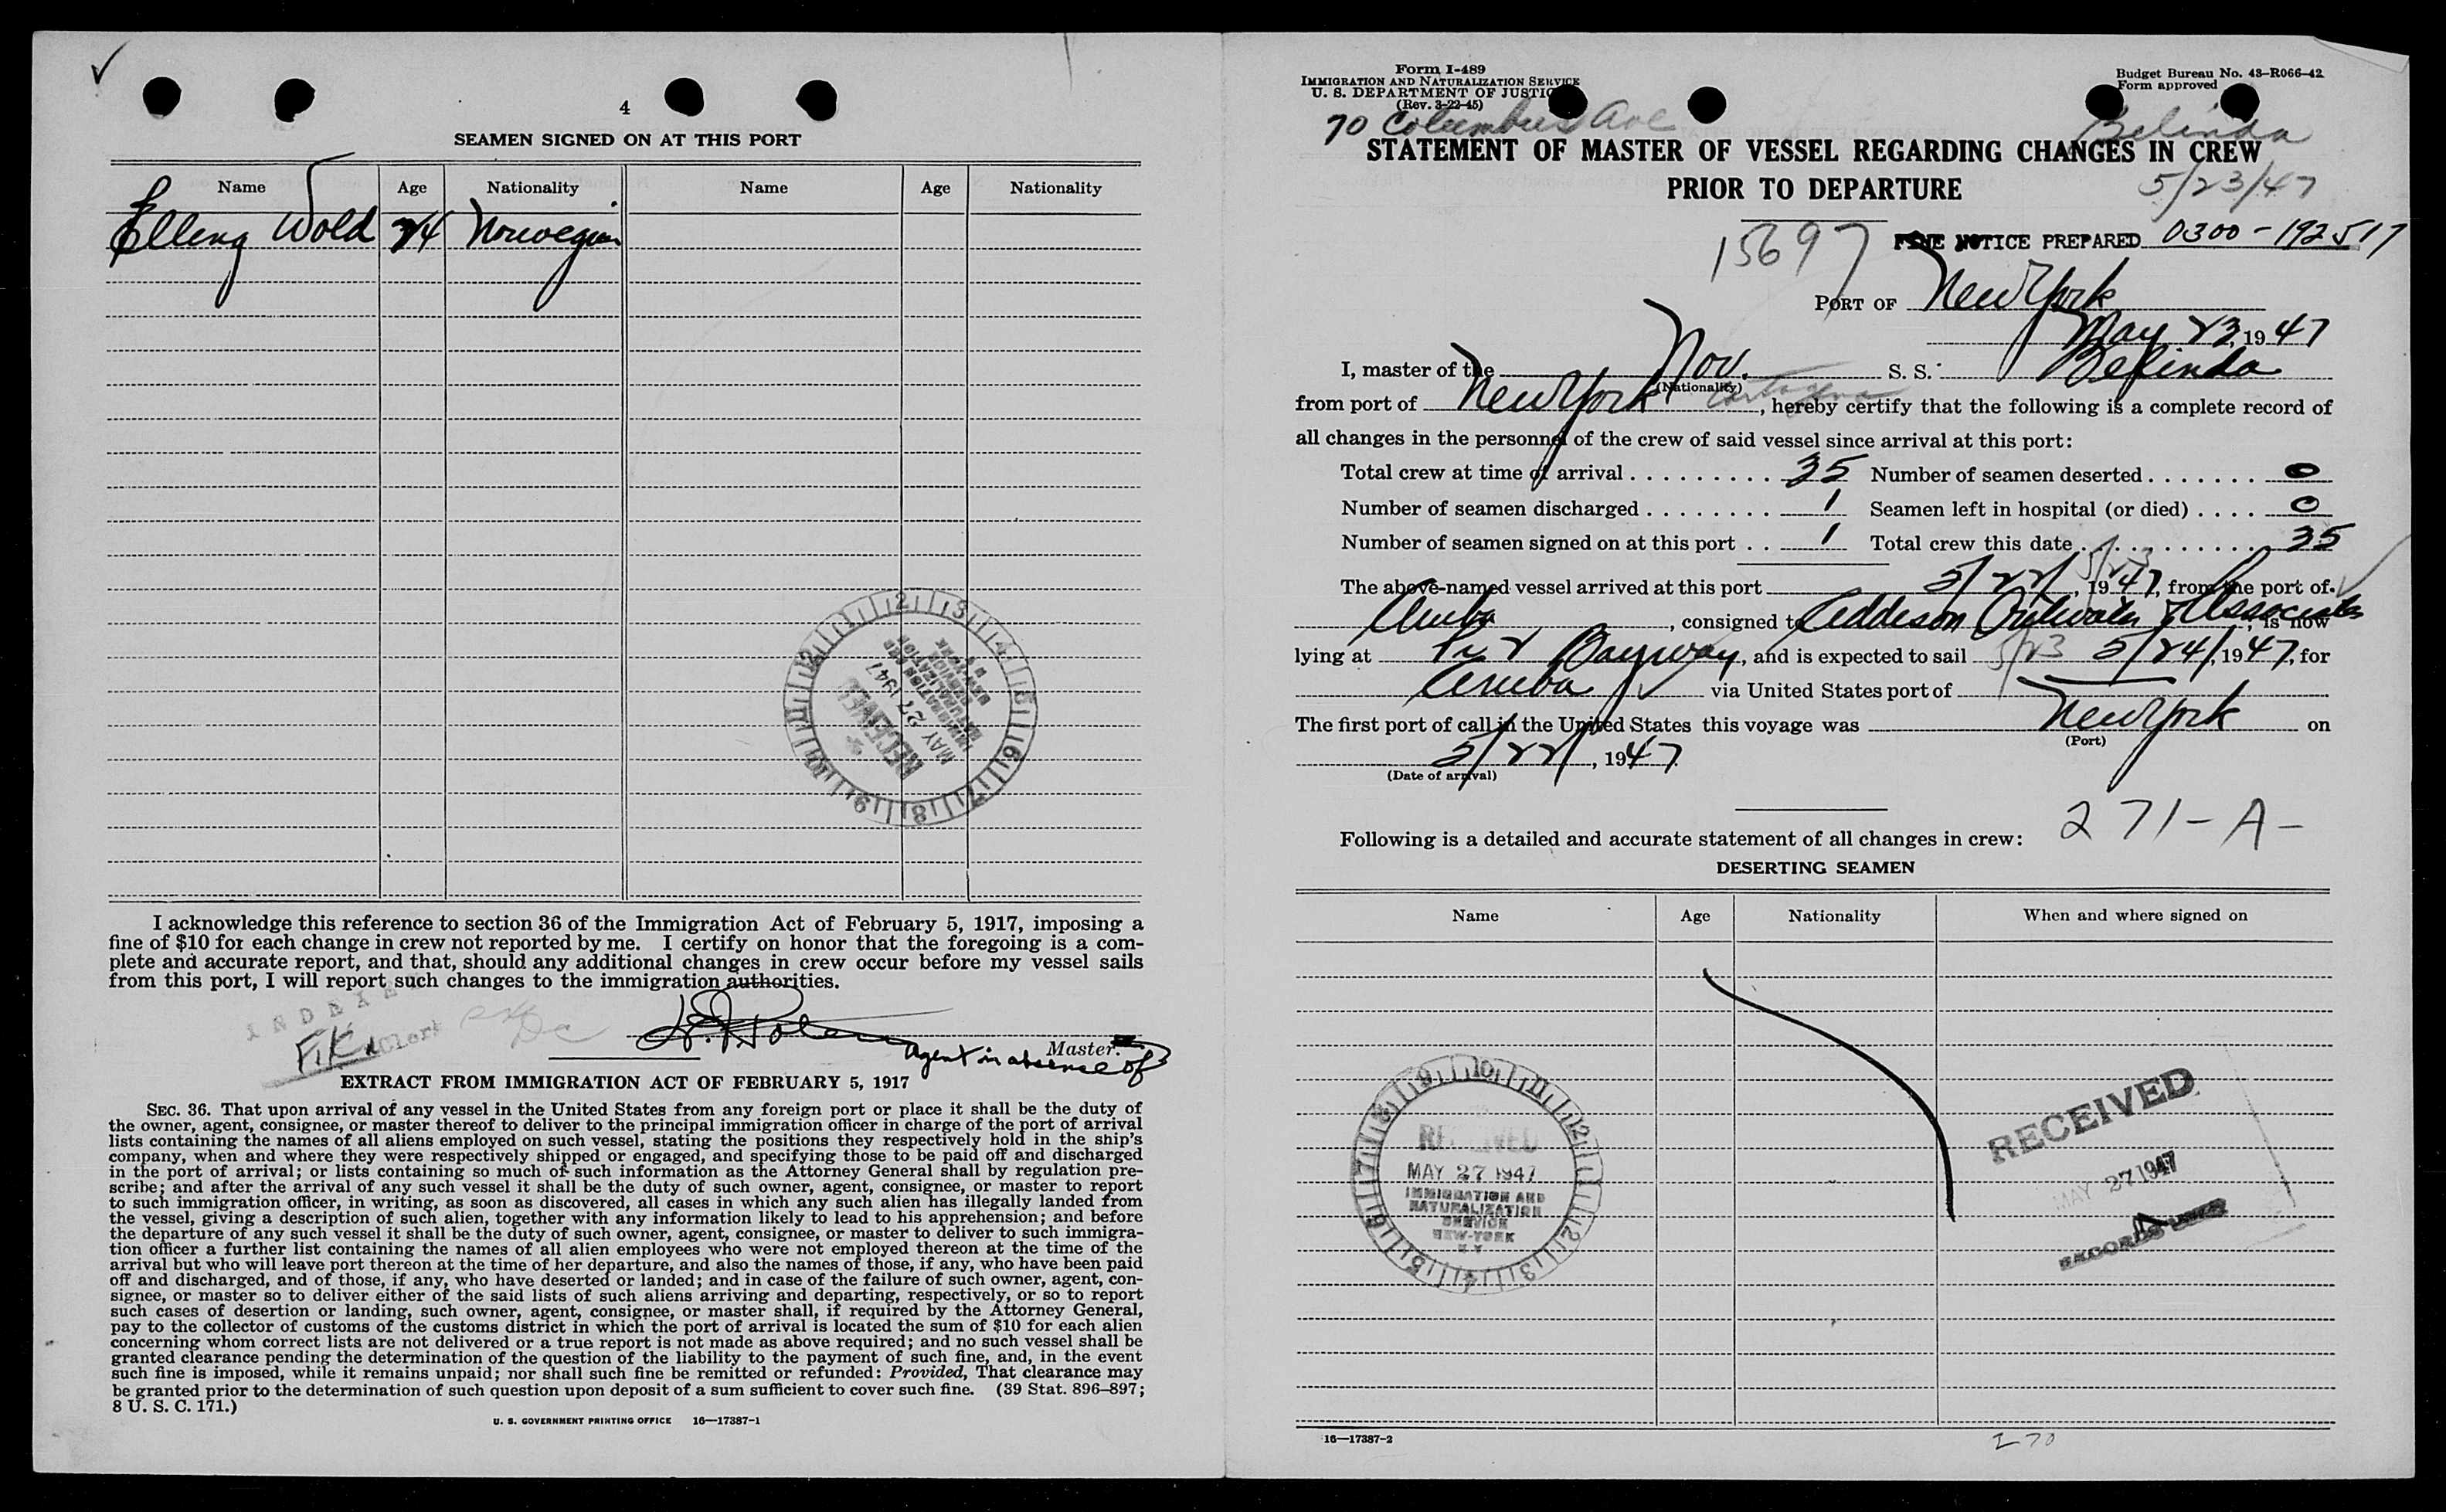 4
SEAMEN SIGNED ON AT THIS PORT
Name Age Nationality Name Age Nationality
Elling Wold 24 Norwegian
RECEIVED
MAY 27 1947
IMMIGRATION AND
NATURALIZATION
SERVICE
NEW YORK
N Y
I acknowledge this reference to section 36 of the Immigration Act of February 5, 1917, imposing a
fine of $10 for each change in crew not reported by me. I certify on honor that the foregoing is a com-
plete and accurate report, and that, should any additional changes in crew occur before my vessel sails
from this port, I will report such changes to the immigration authorities.
INDEXED
F.K. Clerk
Master.
Agent in absence of
EXTRACT FROM IMMIGRATION ACT OF FEBRUARY 5, 1917
SEC. 36. That upon arrival of any vessel in the United States from any foreign port or place it shall be the duty of
the owner, agent, consignee, or master thereof to deliver to the principal immigration officer in charge of the port of arrival
lists containing the names of all aliens employed on such vessel, stating the positions they respectively hold in the ship's
company, when and where they were respectively shipped or engaged, and specifying those to be paid off and discharged
in the port of arrival; or lists containing so much of such information as the Attorney General shall by regulation pre-
scribe; and after the arrival of any such vessel it shall be the duty of such owner, agent, consignee, or master to report
to such immigration officer, in writing, as soon as discovered, all cases in which any such alien has illegally landed from
the vessel, giving a description of such alien, together with any information likely to lead to his apprehension; and before
the departure of any such vessel it shall be the duty of such owner, agent, consignee, or master to deliver to such immigra-
tion officer a further list containing the names of all alien employees who were not employed thereon at the time of the
arrival but who will leave port thereon at the time of her departure, and also the names of those, if any, who have been paid
off and discharged, and of those, if any, who have deserted or landed; and in case of the failure of such owner, agent, con-
signee, or master so to deliver either of the said lists of such aliens arriving and departing, respectively, or so to report
such cases of desertion or landing, such owner, agent, consignee, or master shall, if required by the Attorney General,
pay to the collector of customs of the customs district in which the port of arrival is located the sum of $10 for each alien
concerning whom correct lists are not delivered or a true report is not made as above required; and no such vessel shall be
granted clearance pending the determination of the question of the liability to the payment of such fine, and, in the event
such fine is imposed, while it remains unpaid; nor shall such fine be remitted or refunded: Provided, That clearance may
be granted prior to the determination of such question upon deposit of a sum sufficient to cover such fine. (39 Stat. 896–897;
8 U. S. C. 171.)
U. S. GOVERNMENT PRINTING OFFICE 16—17387-1
Form I-489
IMMIGRATION AND NATURALIZATION SERVICE
U. S. DEPARTMENT OF JUSTIC
(Rev. 3-22-45)
Budget Bureau No. 43–R066–42
Form approved
70 Columbus Ave
Belinda
STATEMENT OF MASTER OF VESSEL REGARDING CHANGES IN CREW
PRIOR TO DEPARTURE
5/23/47
15697 FINE NOTICE PREPARED 0300-192517
PORT OF New York
May 23, 1947
I, master of the Nor. S. S. Belinda
(Nationality)
from port of New York Cartagena, hereby certify that the following is a complete record of
all changes in the personnel of the crew of said vessel since arrival at this port:
Total crew at time of arrival 35 Number of seamen deserted 0
Number of seamen discharged 1 Seamen left in hospital (or died) 0
Number of seamen signed on at this port 1 Total crew this date 35
5/23
The above-named vessel arrived at this port 5/22/, 1947, from the port of
Aruba, consigned to Addison Associates, is now
lying at Pier 2 Bayway, and is expected to sail 5/23 5/24/, 1947, for
Aruba via United States port of
The first port of call in the United States this voyage was New York on
(Port)
5/22/, 1947
(Date of arrival)
Following is a detailed and accurate statement of all changes in crew: 271-A-
DESERTING SEAMEN
Name Age Nationality When and where signed on
RECEIVED
MAY 27 1947
IMMIGRATION AND
NATURALIZATION
SERVICE
NEW-YORK
N Y
RECEIVED
MAY 27 1947
RECORDS
16—17387-2
270